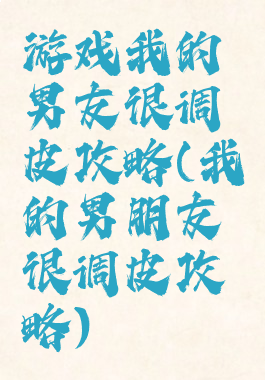 游戏我的
男友很调
皮攻略(我
的男朋友
很调皮攻
略)